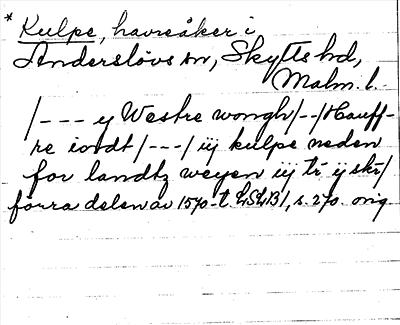 * Kulpe, havreåker i
Anderslövs sn, Skytts hd,
Malm. l.
/--- y Westre wongh/--/Hauff-
re iordt/---/ iij kulpe neden
for landtz weyen iij tr ij skr/
förra delen av 1570-t. LSLB1, s. 270. orig